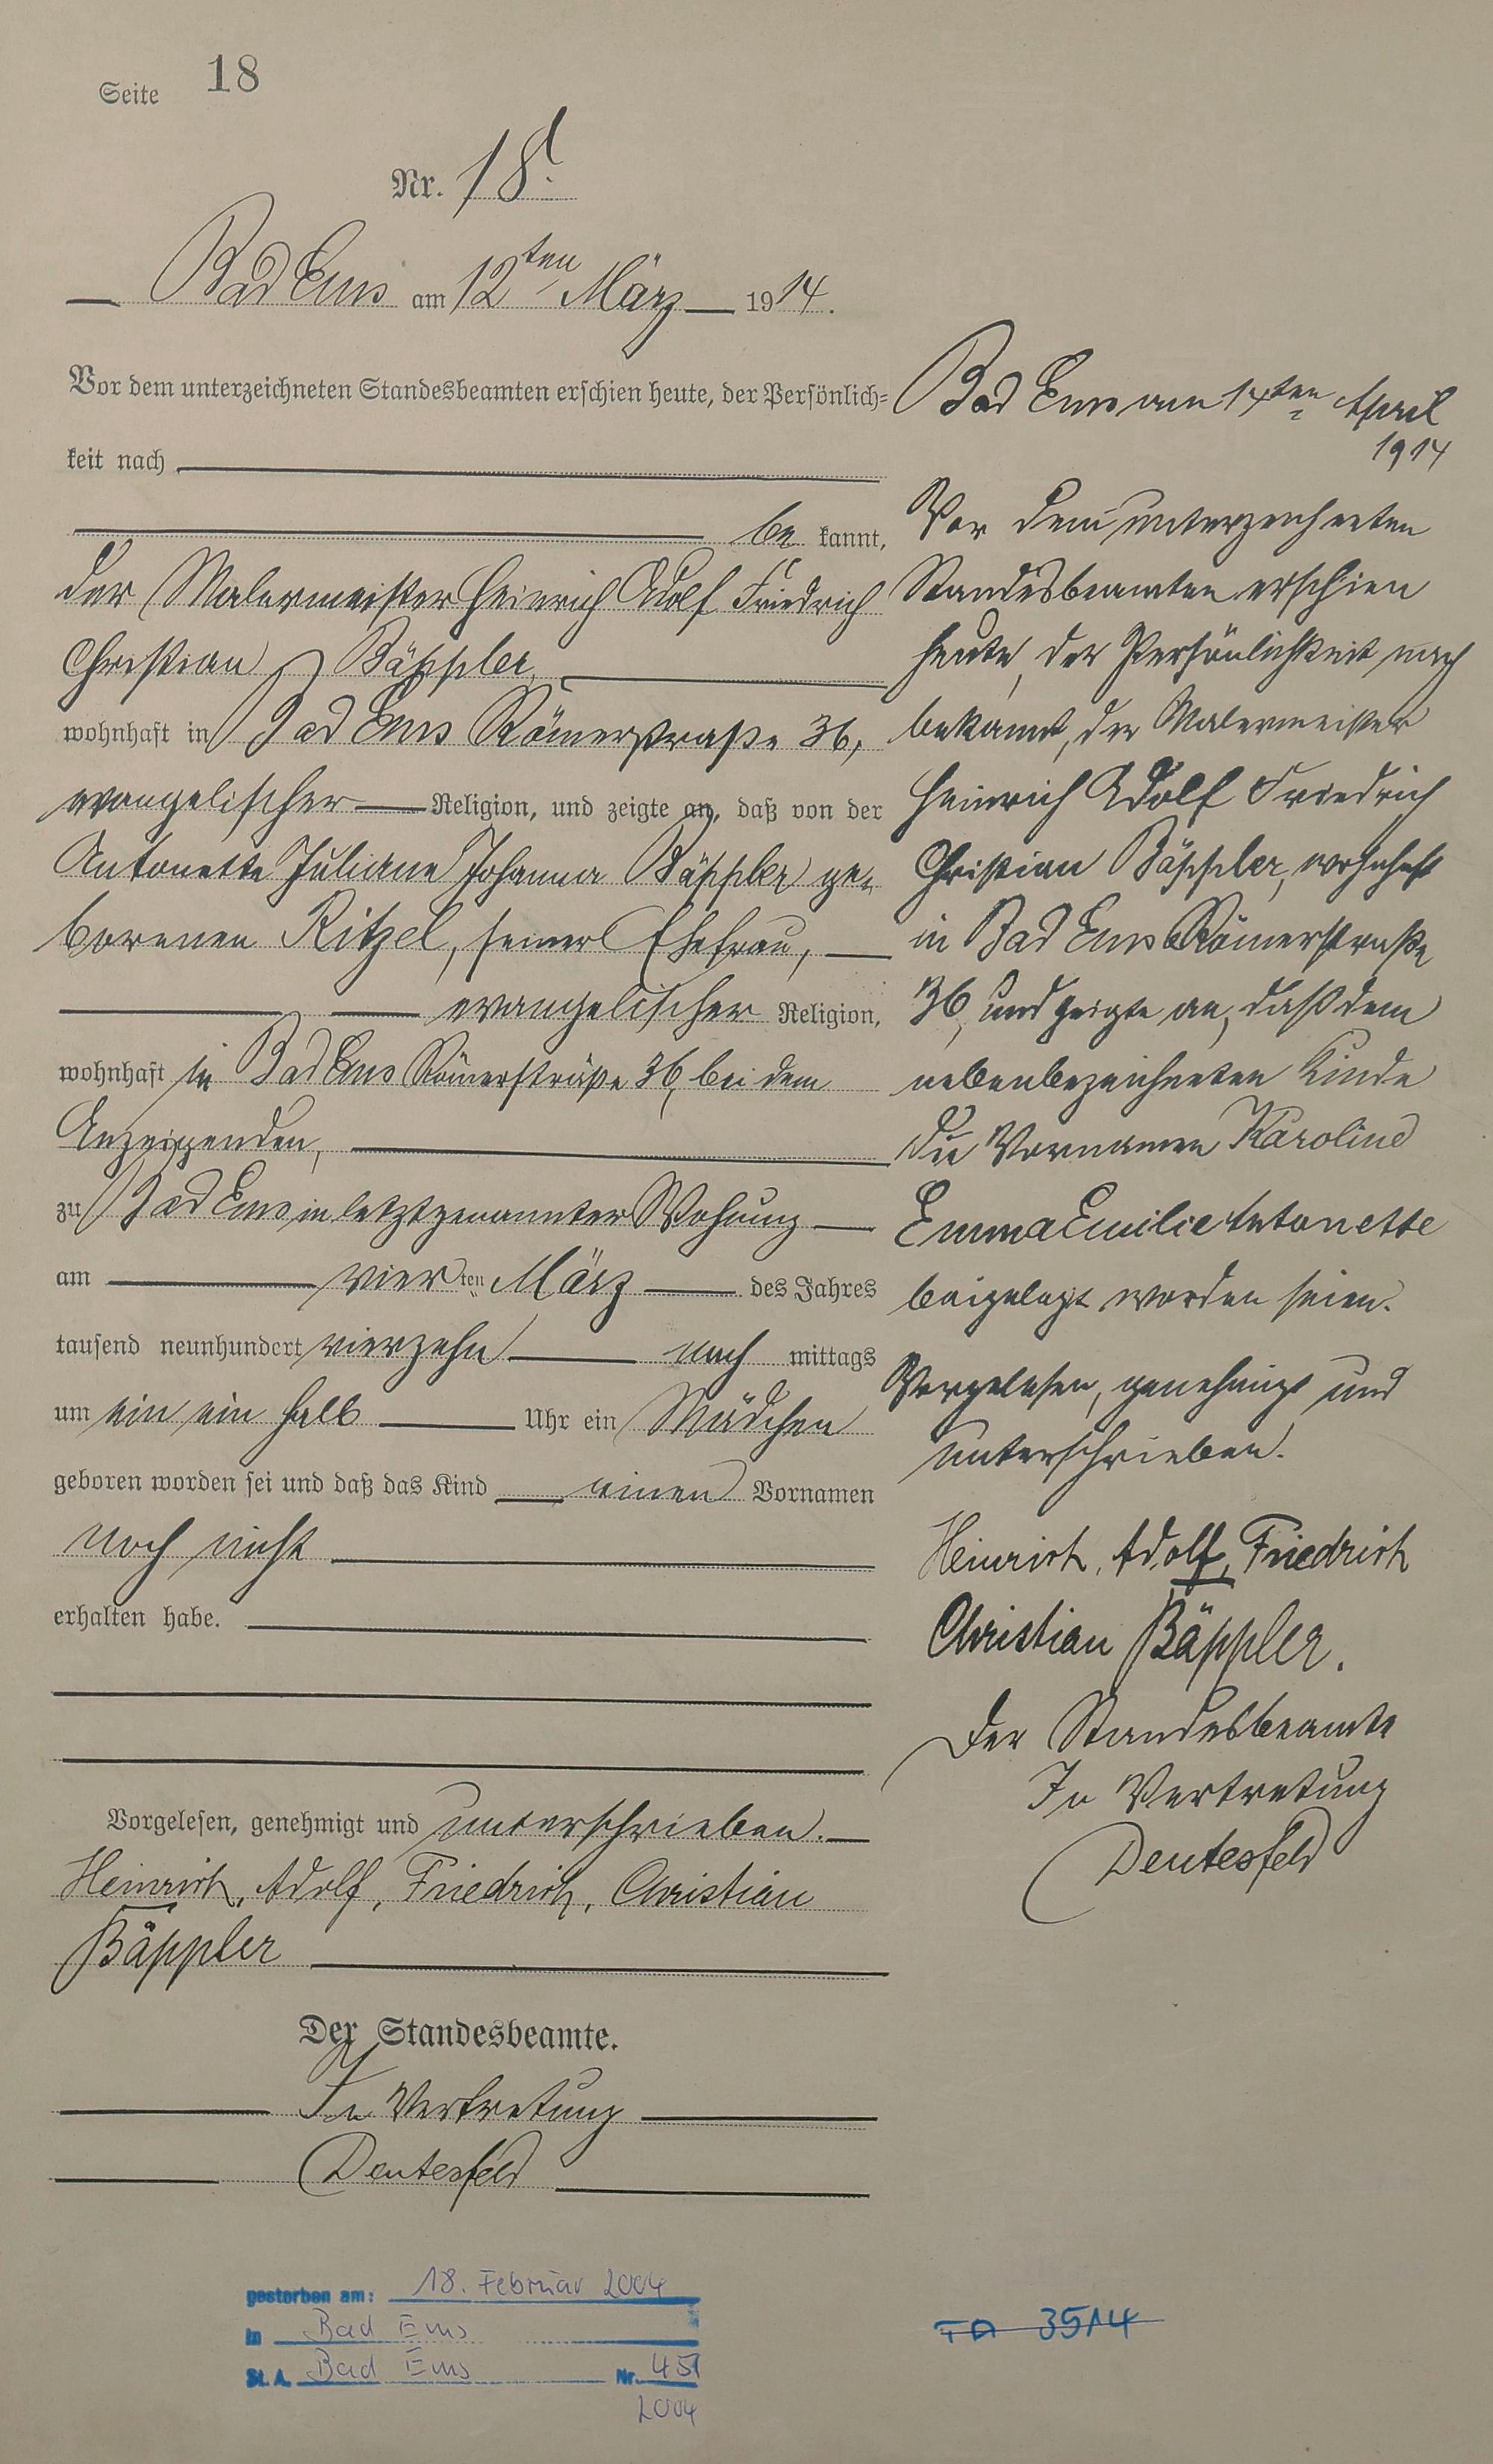 Seite 18
Nr. 18.
Bad Ems am 12ten März 1914.
Vor dem unterzeichneten Standesbeamten erschien heute, der Persönlich=
keit nach
be kannt,
der Malermeister Heinrich Adolf Friedrich
Christian Bäppler,
wohnhaft in Bad Ems Römerstraße 36,
evangelischer Religion, und zeigte an, daß von der
Antonette Juliane Johanna Bäppler ge-
borenen Ritzel, seiner Ehefrau,
evangelischer Religion,
wohnhaft in Bad Ems Römerstraße 36, bei dem
Anzeigenden,
zu Bad Ems in letztgenannter Wohung
am vierten März des Jahres
tausend neunhundert vierzehn nach mittags
um ein ein halb Uhr ein Mädchen
geboren worden sei und daß das Kind einen Vornamen
noch nicht
erhalten habe.
Vorgelesen, genehmigt und unterschrieben.
Heinrich, Adolf, Friedrich, Christian
Bäppler
Der Standesbeamte.
In Vertretung
Deutesfeld
Bad Ems am 14ten April
1914
Vor dem unterzeichneten
Standesbeamten erschien
heute, der Persönlichkeit nach
bekannt, der Malermeister
Heinrich Adolf Friedrich
Christian Bäppler, wohnhaft
in Bad Ems Römerstraße
36, und zeigte an, daß dem
nebenbezeichneten Kinde
die Vornamen Karoline
Emma Emilie Antonette
beigelegt worden seien.
Vorgelesen, genehmigt und
unterschrieben.
Heinrich, Adolf, Friedrich
Christian Bäppler.
Der Standesbeamte
In Vertretung
Deutesfeld
gestorben am: 18. Februar 2004
in Bad Ems
St. A. Bad Ems Nr. 451
2004
3514